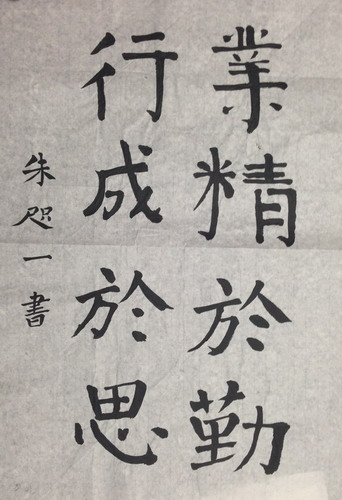 業精於勤
行成於思
朱咫一書